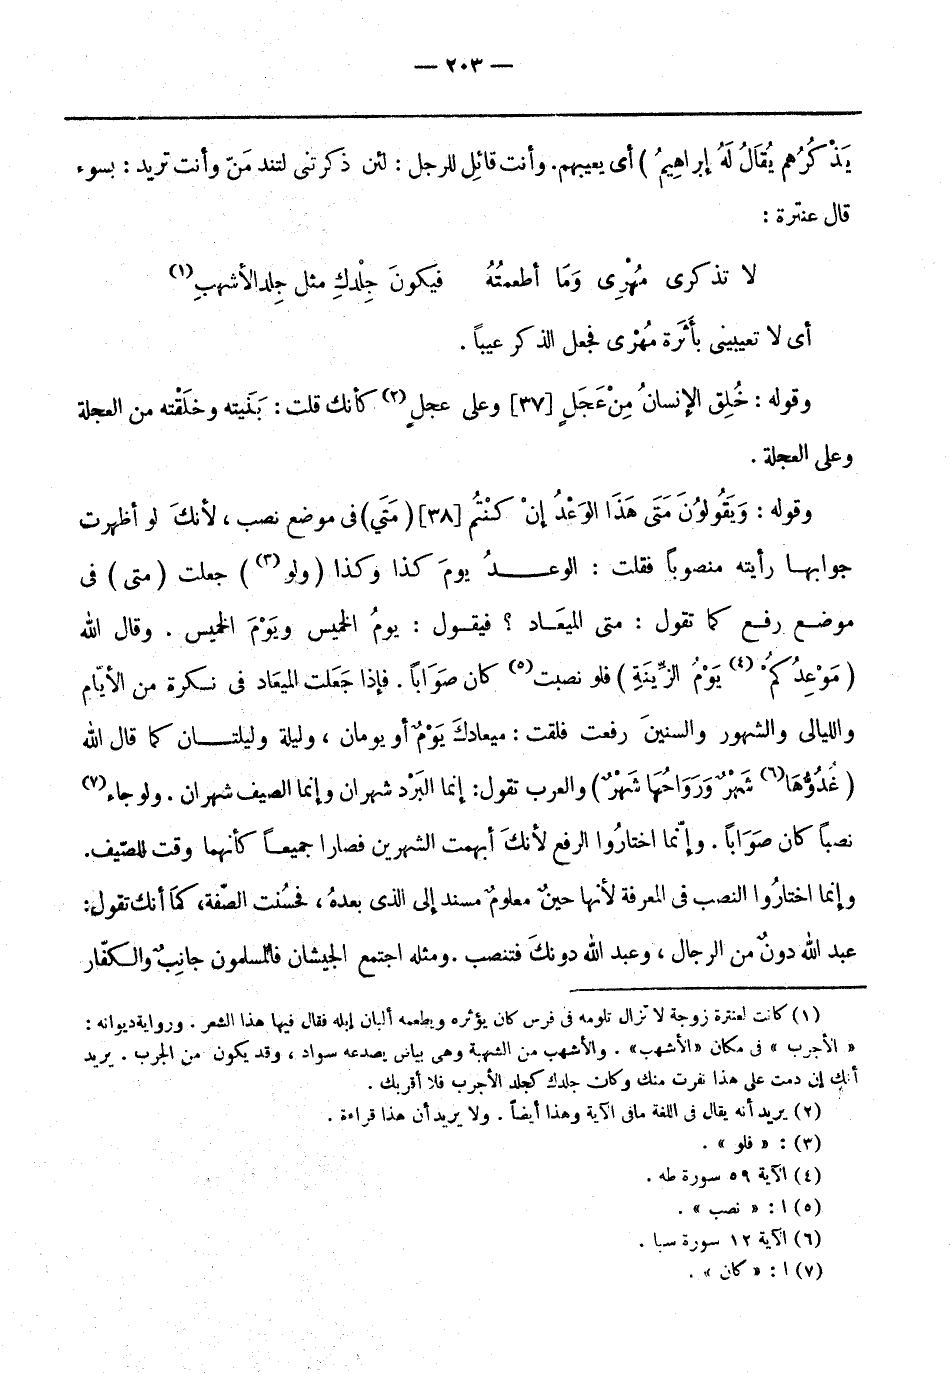 — ٢٠٣ —
يَذْكُرُهم يُقَالُ لَهُ إبراهِيمُ ) أى يعيبهم. وأنت قائِل للرجل : لئن ذكرتنى لتندمَنّ وأنت تريد : بسوء
قال عنترة :
لا تذكرى مُهْرِى وَمَا أطعمتُهُ فيكونَ جِلْدكِ مثل جِلدالأشهبِ(١)
أى لا تعيبينى بأَثَرَة مُهْرى فجعل الذكر عيباً .
وقوله : خُلِق الإنسانُ مِنْ عَجَلٍ [٣٧] وعلى عجلٍ(٢) كأنك قلت : بَنَيته وخلَقْته من العجلة
وعلى العجلة .
وقوله : وَيَقُولُونَ مَتَى هَذَا الوَعْدُ إنْ كنْتُم [٣٨] ( مَتَى ) فى موضع نصب ، لأنكَ لو أظهرت
جوابها رأيته منصوباً فقلت : الوعدُ يومَ كذا وكذا ( ولو(٣) ) جعلت ( متى ) فى
موضع رفع كما تقول : متى الميعَاد ؟ فيقول : يومُ الخميس ويَوْمَ الخميس . وقال الله
( مَوْعِدُ كمُ(٤) يَوْمُ الزِّينَةِ ) فلو نصبت(٥) كان صَوَاباً . فإذا جَعَلت الميعَاد فى نسكرة من الأيّام
والليالى والشهور والسنينَ رفعت فلقت : ميعادكَ يَوْمٌ أو يومان ، وليلة وليلتان كما قال الله
( غُدُوُّهَا(٦) شَهْرٌ وَرَوَاحُهَا شَهْرٌ ) والعرب تقول: إنما البَرْد شهران وإنما الصيف شهران . ولو جاء(٧)
نصباً كان صَوَاباً . وإنّما اختارُوا الرفع لأنكَ أبهمت الشهرين فصارا جميعاً كأنهما وقت للصّيف.
وإنما اختارُوا النصب فى المعرفة لأنها حينٌ معلومٌ مسند إلى الذى بعدهُ ، فحسُنت الصّفة، كمَا أنك تقول:
عبد الله دونٌ من الرجال ، وعبد الله دونكَ فتنصب . ومثله اجتمع الجيشان فالمسلمون جانِبٌ والكفّار
(١) كانت لعنترة زوجة لا تزال تلومه فى فرس كان يؤثره ويطعمه ألبان إبله فقال فيها هذا الشعر . ورواية ديوانه :
« الأجرب » فى مكان «الأشهب» . والأشهب من الشهبة وهى بياض يصدعه سواد ، وقد يكون من الجرب . يريد
أنك إن دمت على هذا نفرت منك وكان جلدك كجلد الأجرب فلا أقربك .
(٢) يريد أنه يقال فى اللغة مافى الآية وهذا أيضاً . ولا يريد أن هذا قراءة .
(٣) : « فلو » .
(٤) الآية ٥٩ سورة طه .
(٥) ا : « نصب » .
(٦) الآية ١٢ سورة سبا .
(٧) ا : « كان » .